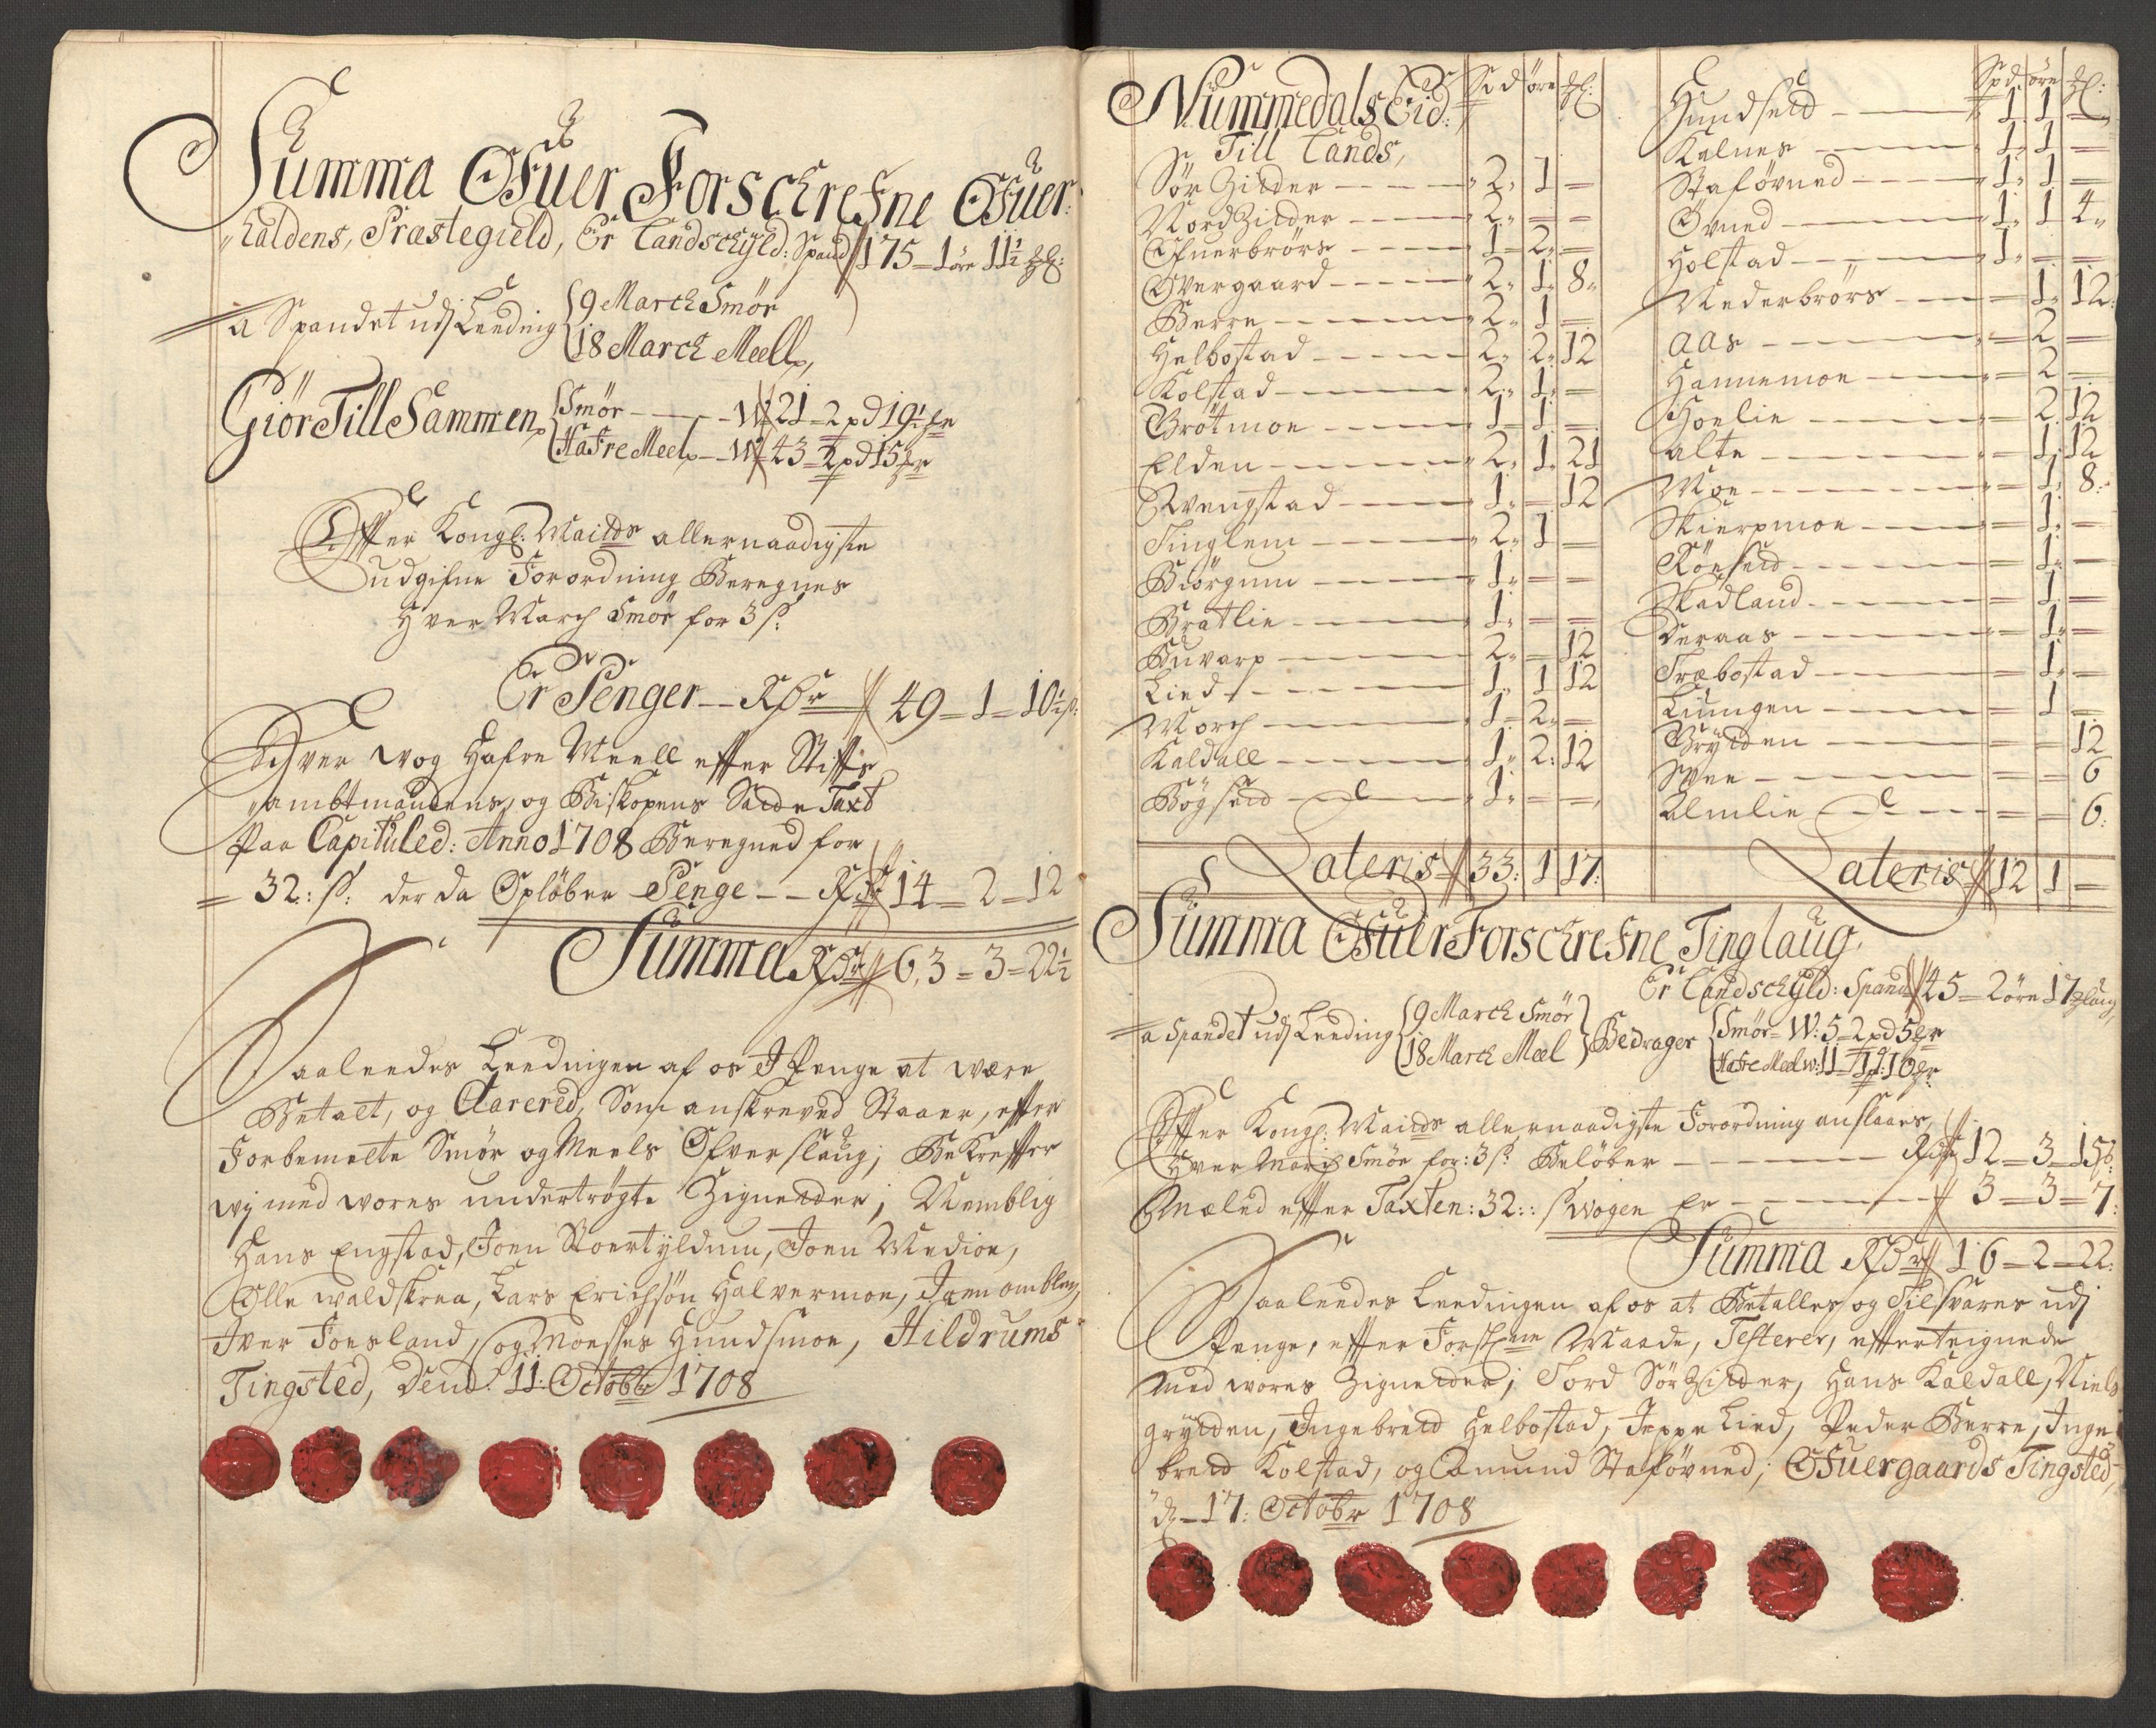 Summa Ofuer Forschrefne Ofuer:
haldens, Præstegield, Er Landschÿld: Spand 175 = 1 öre 11½
a Spandet udj Leeding {9 March Smör
{18 March Meell,
Giör Till Sammen, {Smör — W 21 = 2 pd 19½
{Hafre Meel, — W 43 = 2 pd 15
Effter Kongl: Maitds allernaadigste
udgifne Forordning Beregnes
Hver March Smör for 3 s:
Er Penger — Rdr 49 = 1 = 10½ s:
Hver wog Hafre Meell effter Stiffts
ambtmandens, og Biskopens Satte Taxt
Paa Capituled: Anno 1708 Beregned for
= 32: s: der da Opløber Penge — Rdr 14 = 2 = 12
Summa Rdr 63 = 3 = 22½
Saaleedes Leedingen af os J Penge at være
Betalt, og Clarered, Som anskreved Staaer, effter
Forbemelte Smör og Meels Ofverslaug; Bekreffter
wj med wores undertrögte Zignetter; Nemblig
Hans Engstad, Joen Stoertÿldum, Joen Medion,
Olle waldskrea, Lars Erichsön Halvermoe, Joen ombler,
Jver Joesland, og Moesses Hundsmoe, Hildrums
Tingsted, Dend: 11: Octobr 1708
Nummedals Eid: Spd öre
Till Lands,
Sör Zitter — 2 " 1 =
Nord Zitter — 2 " = =
Ofuerbrörs — 1 = 2 =
Overgaard — 2 " 1 " 8 "
Berre — 2 " 1 =
Helbostad — 2 " 2 " 12
Kolstad — 2 " 1 " =
Brötmoe — 1 = 1 =
Elden — 2 " 1 " 21
Svengstad — 1 " = 12
Tinglem — 2 " 1 =
Biörgum — 1 " = =
Bratlie — 1 " = =
Buvarp — 2 " = 12
Lied — 1 " 1 12
Morch — 1 = 2 =
Kaldall — 1 " 2 : 12
Bögseid — 1 " = =
Lateris 33: 1 17:
Spd öre
Hundseid — 1 " 1 =
Kalnes — 1 " 1 =
Staføvned — 1 " 1 =
Øvned — 1 " 1 4 "
Holstad — 1 " = =
Nederbrörs — = 1 " 12:
Aas — = 2 =
Hannemoe — = 2 =
Hoelie — = 2 12
Alte — = 1 : 12
Moe — = 1 " 8:
Skierpmoe — = 1 " =
Rönseid — = 1 " =
Skadland — = 1 =
Deraas — = 1 " =
Træbostad — = 1 " =
Liungen — = 1 =
Grÿtten — = = 12
Svee — = = 6
Almlie — = = 6:
Lateris 12 1 =
Summa Ofuer Forschrefne Tinglaug,
Er Landschÿld: Spand 45 = 2 öre 17
a Spandet udj Leeding {9 March Smör
{18 March Meel } Bedrager {Smör = W: 5 = 2 pd 5
{Hafre Meel W: 11 = 1 p: 10
Effter Kongl: Maitds allernaadigste Forordning anslaaes,
Hver March Smör for: 3 s: Belöber — Rdr 12 = 3 = 15 s:
Meeled effter Taxten: 32: s wogen Er — 3 = 3 = 7:
Summa Rdr 16 = 2 = 22:
Saaleedes Leedingen af os at Betalles og Tilsvares udj
Penge, effter Forschne Maade, Testerer, effterteignede
med wores Zignetter; Tord Sör Zitter, Hans Kaldall, Niels
Grÿtten, Ingebrect Helbostad, Jeppe Lied, Peder Berre, Inge
brect Kolstad, og Amund Staføvned; Ofuergaards Tingsted,
d — 17: Octobr 1708